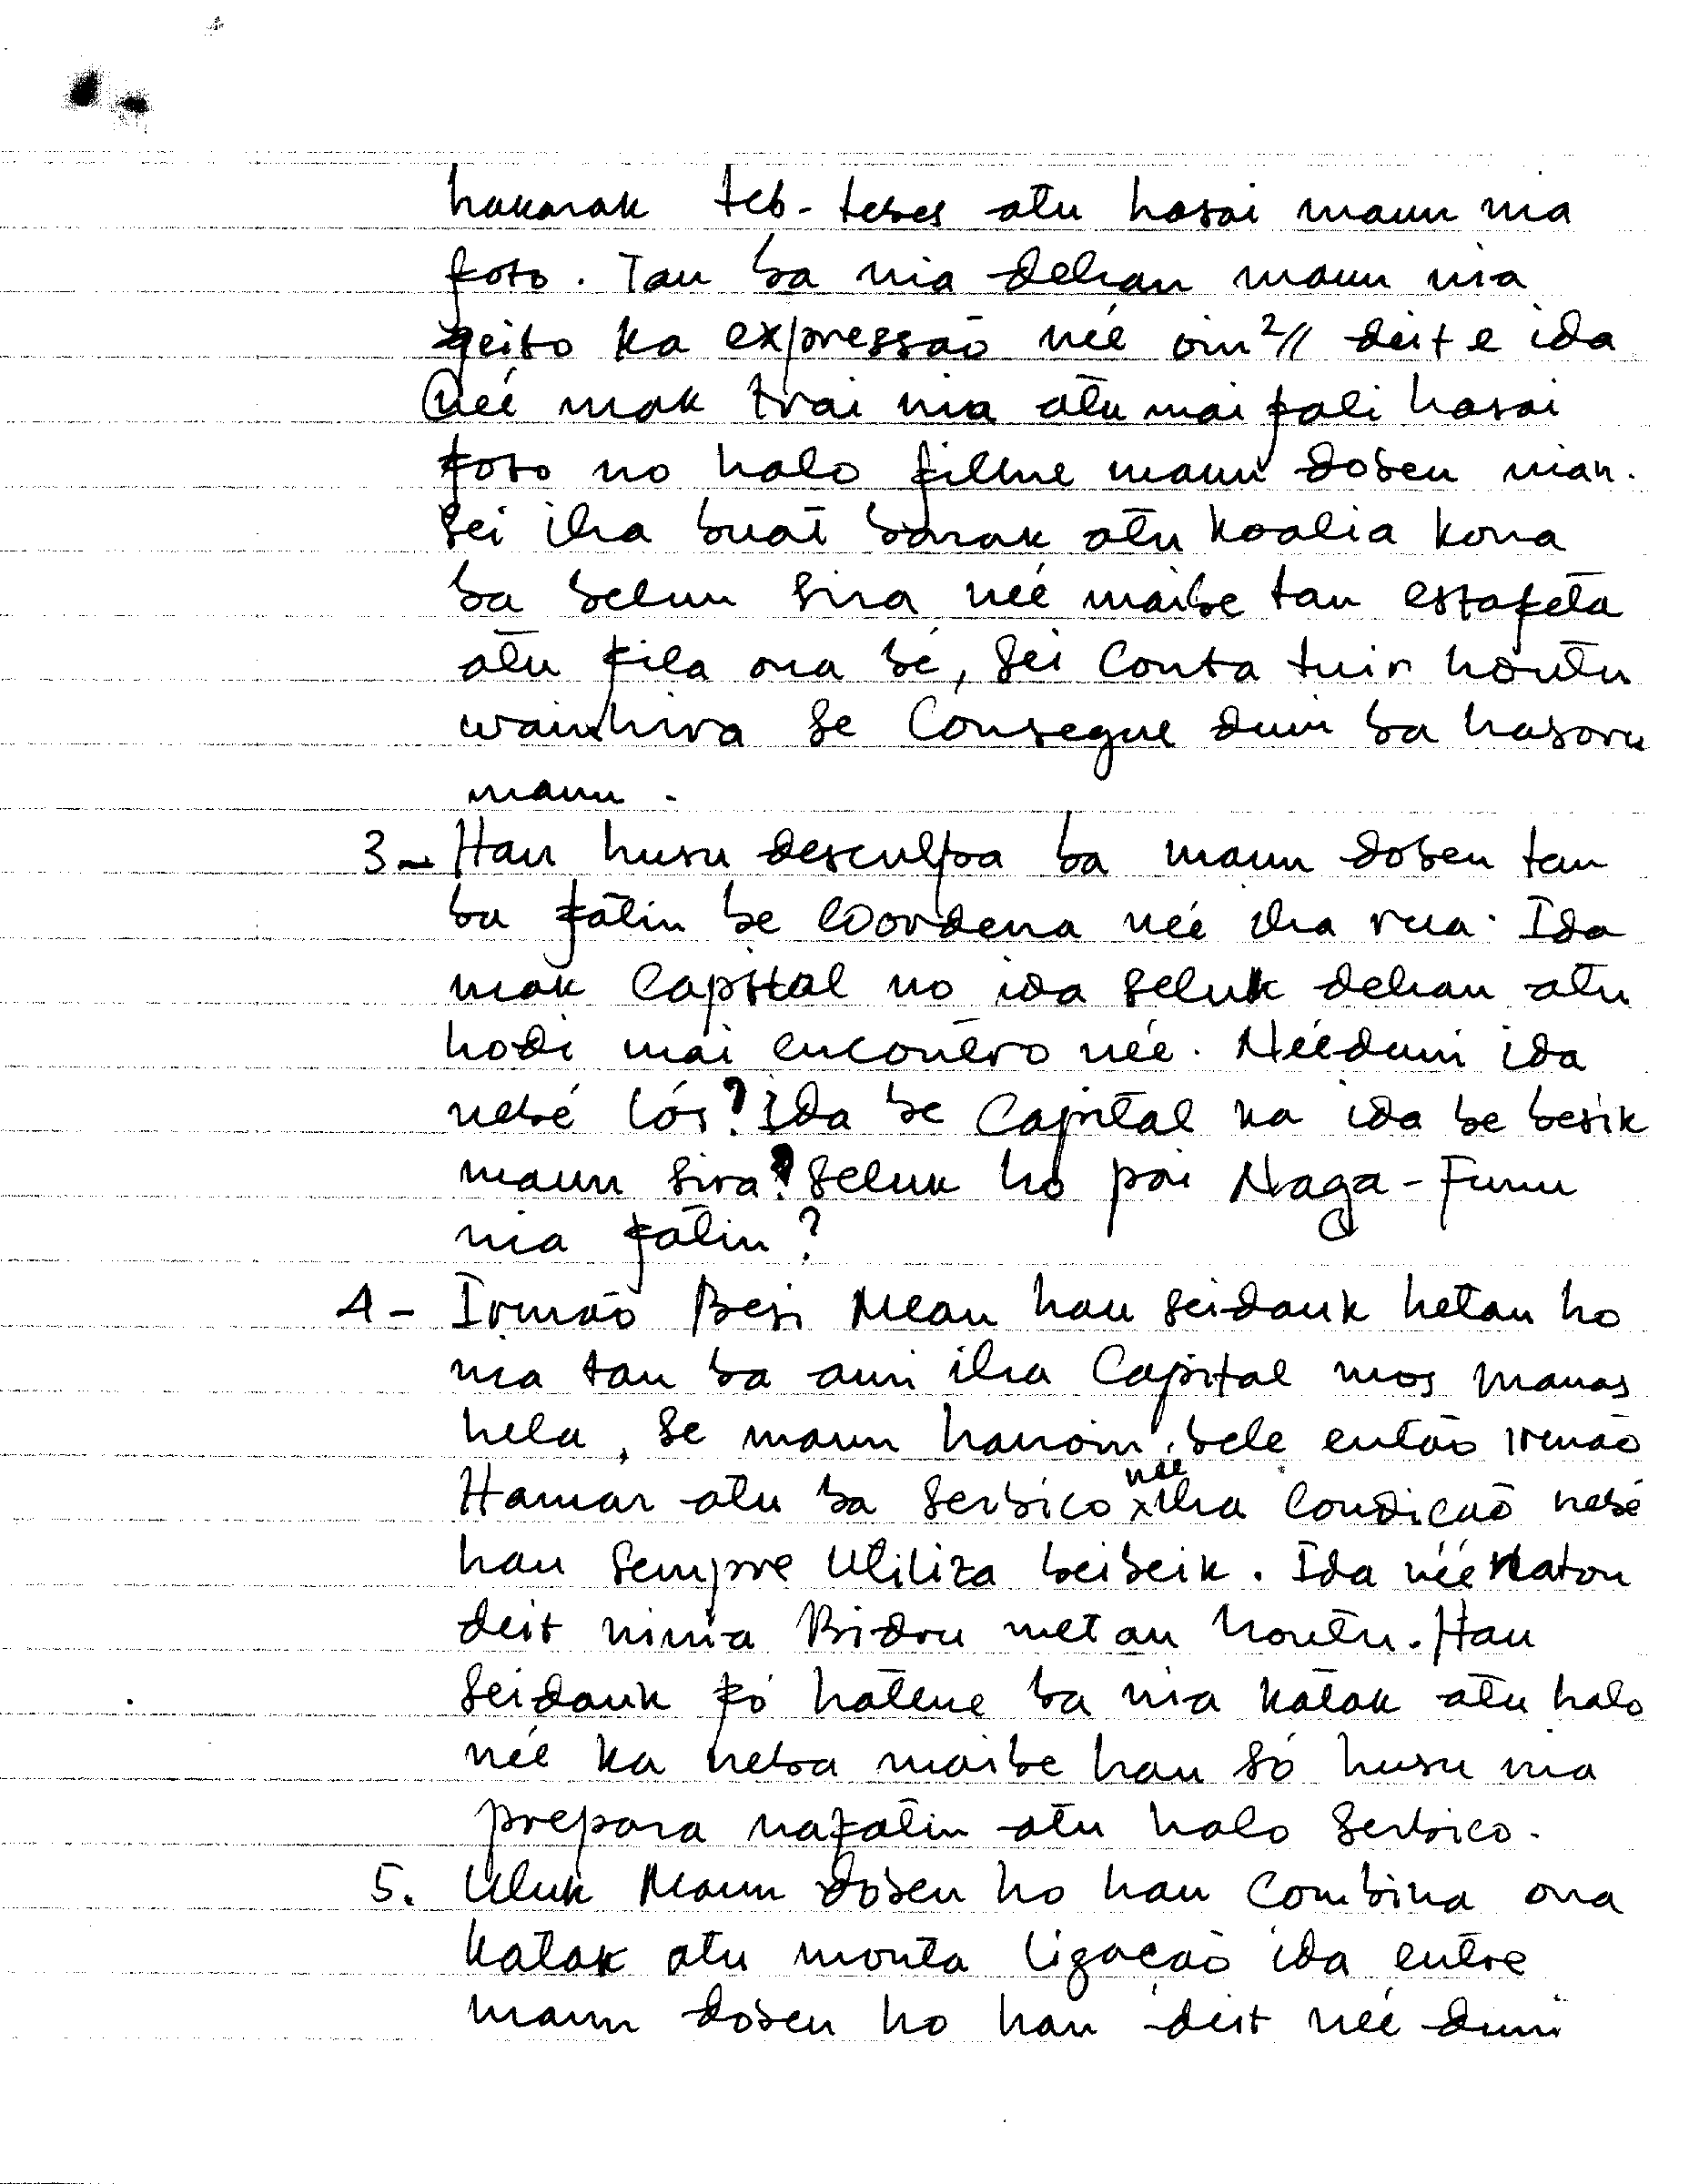 hakarak teb-tebes atu hasai maun nia
foto. Tan ba nia dehan maun nia
geito ka expressão née oin² deit e ida
née mak trai nia atu mai fali hasai
foto no halo filme maun doben nian.
Sei iha buat barak atu koalia kona
ba belun sira née maibe tan estafeta
atu fila ona bé, sei conta tuir hotu
wainhira se consegue duni ba hasoru
maun.
3- Hau husu desculpa ba maun doben tan
ba fatin be coordena née iha rua. Ida
mak Capital no ida seluk dehan atu
hodi mai encontro née. Néeduni ida
nebé lós? Ida be Capital ka ida be besik
maun sira? Seluk ho pai Naga-Funu
nia fatin?
4- Irmão Besi Mean hau seidauk hetan ho
nia tan ba ami iha Capital mos manas
hela, se maun hanoin bele então irmão
Hamar atu ba serbico née iha condicão nebé
hau sempre utiliza beibeik. Ida née naton
deit ninia Bidru metan hotu. Hau
seidauk fó hatene ba nia katak atu halo
née ka neba maibe hau só husu nia
prepara nafatin atu halo serbico.
5. Uluk Maun doben ho hau combina ona
katak atu monta ligacão ida entre
maun doben ho hau deit née duni